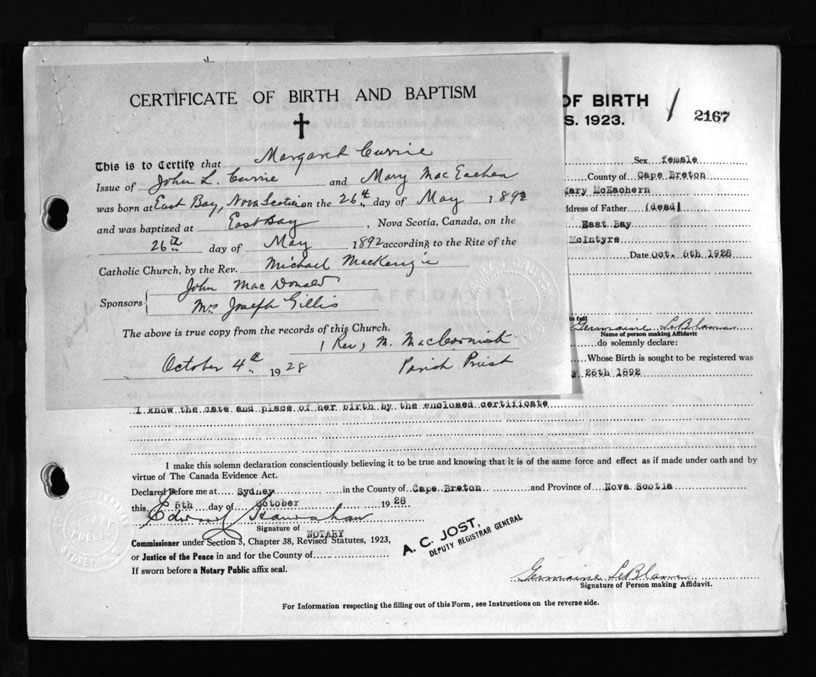 CERTIFICATE OF BIRTH AND BAPTISM
This is to Certify that Margaret Currie
Issue of John L. Currie and Mary MacEachen
was born at East Bay, Nova Scotia on the 26th day of May 1892
and was baptized at East Bay, Nova Scotia, Canada, on the
26th day of May 1892 according to the Rite of the
Catholic Church, by the Rev. Michael MacKenzie
Sponsors John MacDonald
Mrs Joseph Gillis
The above is true copy from the records of this Church.
Rev, M. MacCormick
October 4th 1928 Parish Priest
OF BIRTH
S. 1923.
2167
Sex female
County of Cape Breton
Mary McEachern
ddress of Father (dead)
East Bay
McIntyre
Date Oct. 5th 1928
AFFIDAVIT
in full
Germaine LeBlanc
Name of person making Affidavit
do solemnly declare:
Whose Birth is sought to be registered was
y 26th 1892
I know the date and place of her birth by the enclosed certificate
I make this solemn declaration conscientiously believing it to be true and knowing that it is of the same force and effect as if made under oath and by
virtue of The Canada Evidence Act.
Declared before me at Sydney in the County of Cape Breton and Province of Nova Scotia
this 5th day of October 1928
Signature of NOTARY
Commissioner under Section 3, Chapter 38, Revised Statutes, 1923,
or Justice of the Peace in and for the County of
If sworn before a Notary Public affix seal.
A. C. JOST.
DEPUTY REGISTRAR GENERAL
Germaine LeBlanc
Signature of Person making Affidavit.
For Information respecting the filling out of this Form, see Instructions on the reverse side.